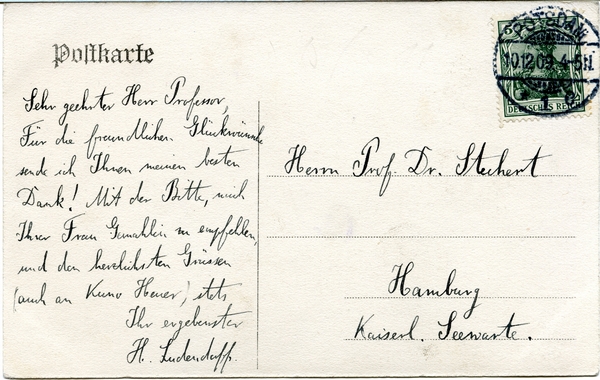 Postkarte
Sehr geehrter Herr Professor,
Für die freundlichen Glückwünsche
sende ich Ihnen meinen besten
Dank! Mit der Bitte, mich
Ihrer Frau Gemahlin zu empfehlen,
und den herzlichsten Grüssen
(auch an Kuno Heuer) stets
Ihr ergebenster
H. Ludendorff.
POTSDAM
10.12.09. 4-5N.
DEUTSCHES REICH
Herrn Prof. Dr. Stechert
Hamburg
Kaiserl. Seewarte.